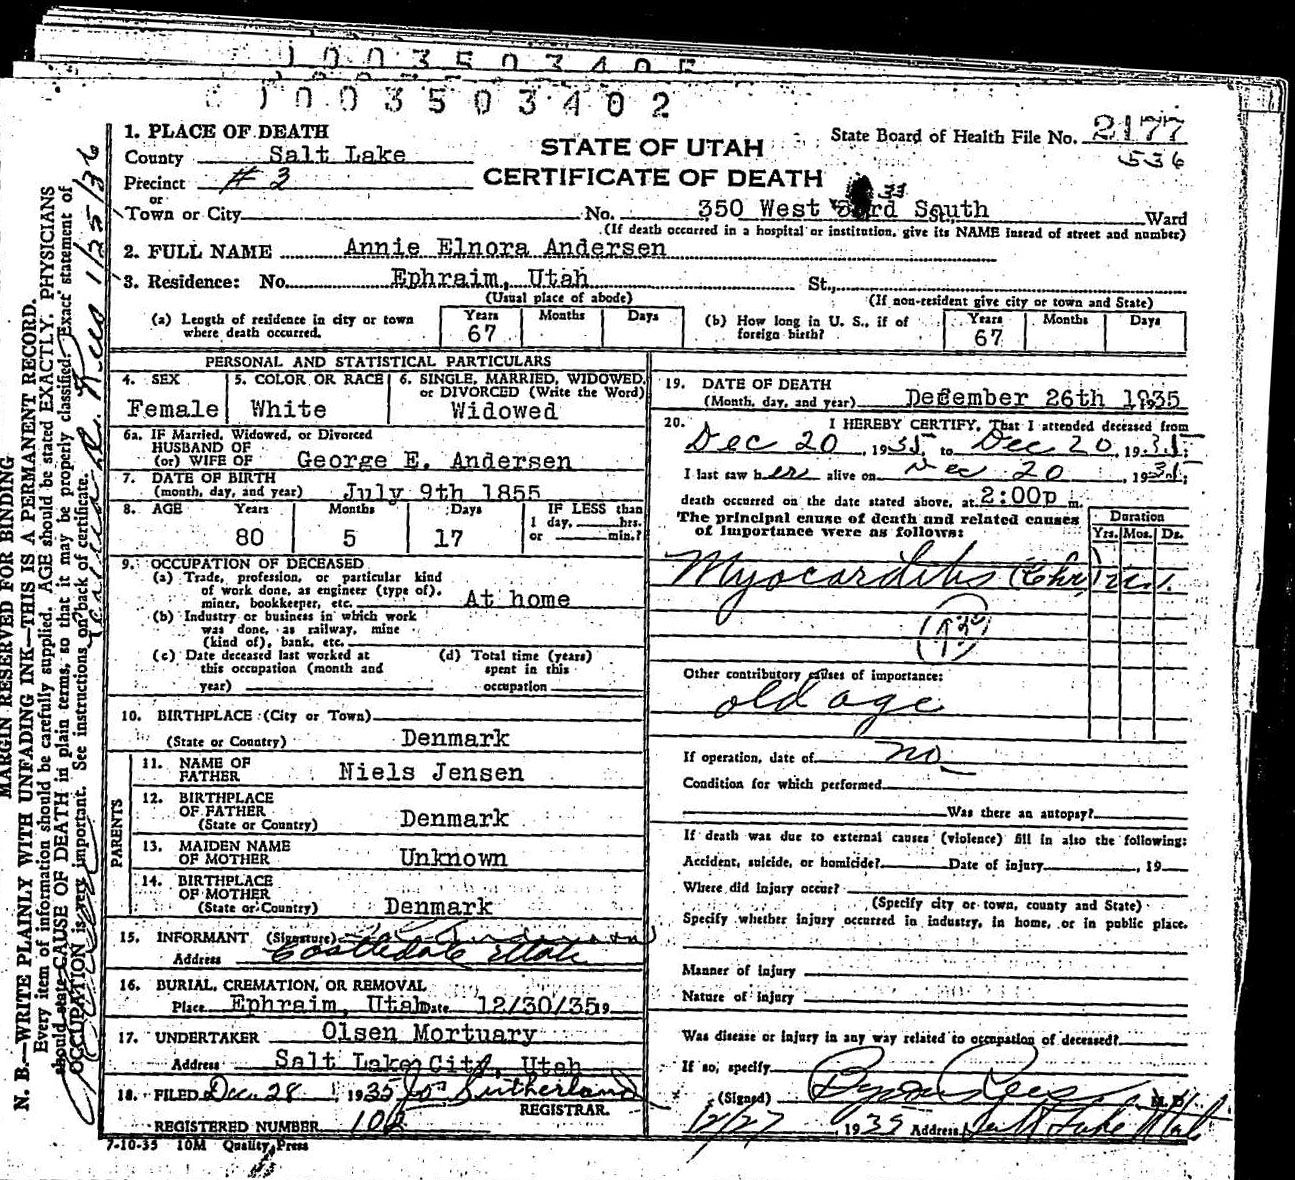 1003503402
1. PLACE OF DEATH
STATE OF UTAH
State Board of Health File No. 2177
County Salt Lake
536
Precinct # 3
CERTIFICATE OF DEATH
or
Town or City No. 350 West 33rd South Ward
(If death occurred in a hospital or institution, give its NAME instead of street and number)
2. FULL NAME Annie Elnora Andersen
3. Residence: No. Ephraim, Utah St.,
(Usual place of abode) (If non-resident give city or town and State)
(a) Length of residence in city or town where death occurred. Years 67 Months Days
(b) How long in U. S., if of foreign birth? Years 67 Months Days
PERSONAL AND STATISTICAL PARTICULARS
4. SEX Female
5. COLOR OR RACE White
6. SINGLE, MARRIED, WIDOWED, or DIVORCED (Write the Word) Widowed
6a. IF Married, Widowed, or Divorced
HUSBAND OF
(or) WIFE OF George E. Andersen
7. DATE OF BIRTH
(month, day, and year) July 9th 1855
8. AGE Years 80 Months 5 Days 17
IF LESS than
1 day, hrs.
or min.?
9. OCCUPATION OF DECEASED
(a) Trade, profession, or particular kind
of work done, as engineer (type of),
miner, bookkeeper, etc. At home
(b) Industry or business in which work
was done, as railway, mine
(kind of), bank, etc.
(c) Date deceased last worked at
this occupation (month and
year)
(d) Total time (years)
spent in this
occupation
10. BIRTHPLACE (City or Town)
(State or Country) Denmark
PARENTS
11. NAME OF
FATHER Niels Jensen
12. BIRTHPLACE
OF FATHER
(State or Country) Denmark
13. MAIDEN NAME
OF MOTHER Unknown
14. BIRTHPLACE
OF MOTHER
(State or Country) Denmark
15. INFORMANT (Signature)
Address Castledale Utah
16. BURIAL, CREMATION, OR REMOVAL
Place Ephraim, Utah Date 12/30/35 19
17. UNDERTAKER Olsen Mortuary
Address Salt Lake City, Utah
18. FILED Dec. 28 1935 Sutherland
REGISTRAR.
REGISTERED NUMBER 102
7-10-35 10M Quality Press
19. DATE OF DEATH
(Month, day, and year) December 26th 1935
20. I HEREBY CERTIFY, That I attended deceased from
Dec 20, 1935, to Dec 20, 1935;
I last saw her alive on Dec 20, 1935;
death occurred on the date stated above, at 2:00p m.
The principal cause of death and related causes
of importance were as follows:
Duration
Yrs. Mos. Ds.
Myocarditis (Chr)
Other contributory causes of importance:
old age
If operation, date of no
Condition for which performed
Was there an autopsy?
If death was due to external causes (violence) fill in also the following:
Accident, suicide, or homicide? Date of injury , 19
Where did injury occur?
(Specify city or town, county and State)
Specify whether injury occurred in industry, in home, or in public place.
Manner of injury
Nature of injury
Was disease or injury in any way related to occupation of deceased?
If so, specify
(Signed) Byron Rees M. D.
12/27, 1935 Address Salt Lake Utah
MARGIN RESERVED FOR BINDING
N. B.—WRITE PLAINLY WITH UNFADING INK—THIS IS A PERMANENT RECORD.
Every item of information should be carefully supplied. AGE should be stated EXACTLY. PHYSICIANS
should state CAUSE OF DEATH in plain terms, so that it may be properly classified. Exact statement of
OCCUPATION is very important. See instructions on back of certificate.
Rees 1/25/36